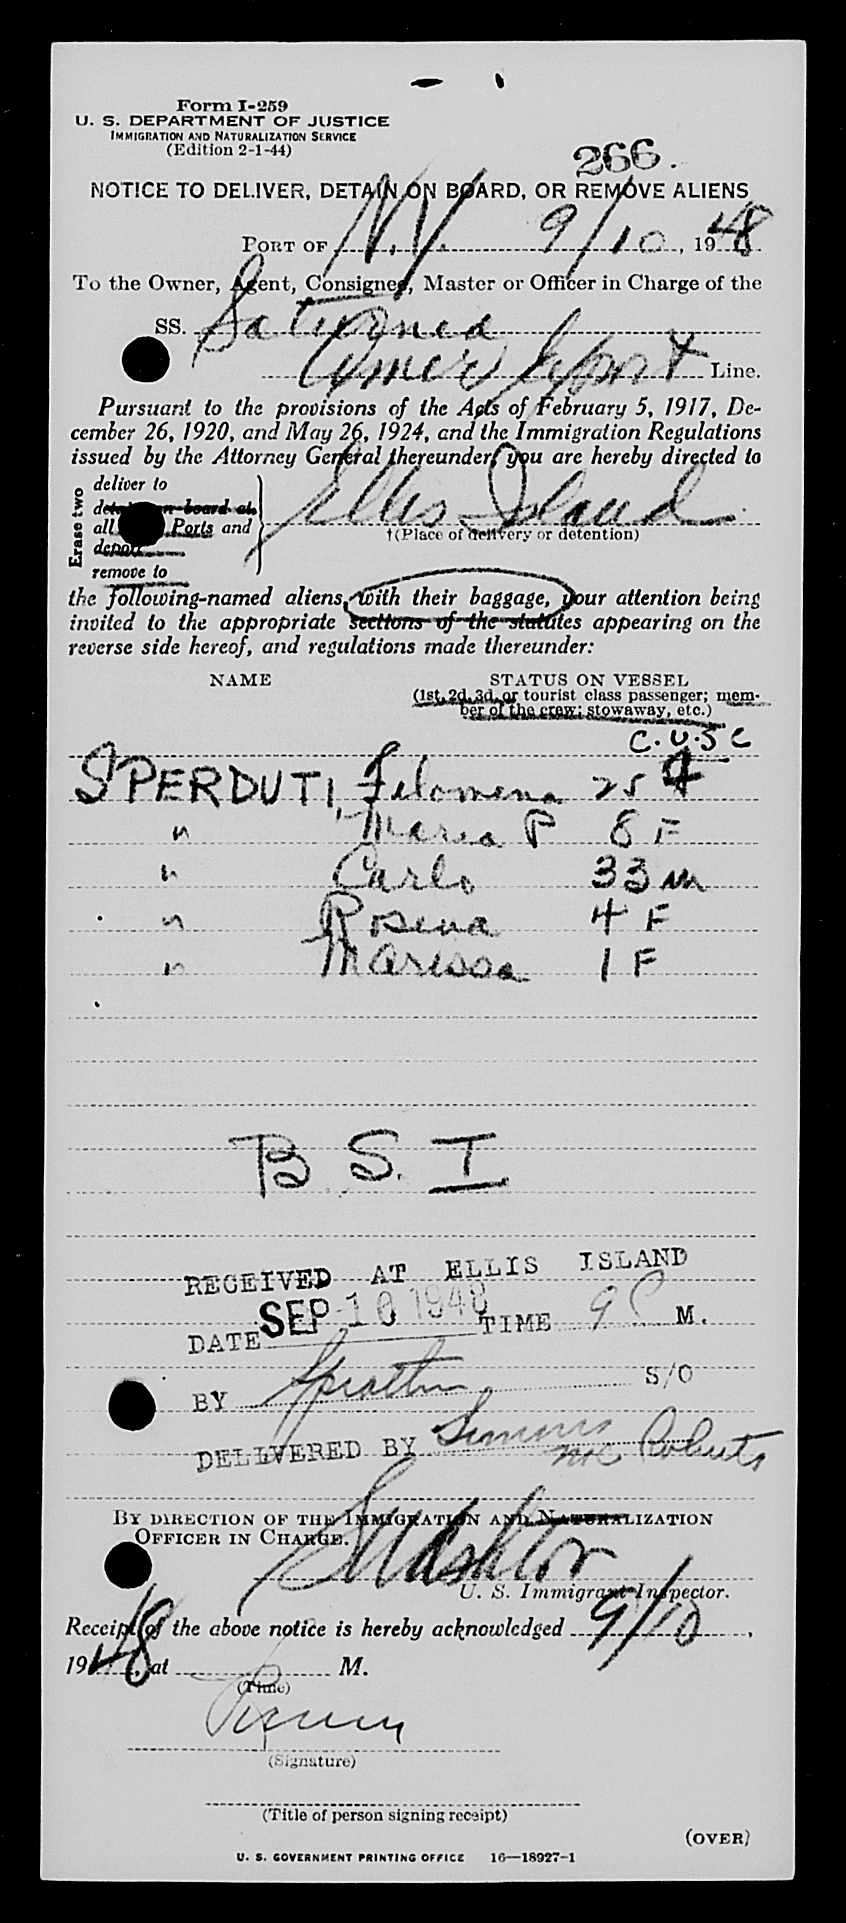 Form I-259
U. S. DEPARTMENT OF JUSTICE
IMMIGRATION AND NATURALIZATION SERVICE
(Edition 2-1-44)
266.
NOTICE TO DELIVER, DETAIN ON BOARD, OR REMOVE ALIENS
PORT OF N.Y. 9/10, 1948
To the Owner, Agent, Consignee, Master or Officer in Charge of the
SS. Saturnia
Amer Export Line.
Pursuant to the provisions of the Acts of February 5, 1917, De-
cember 26, 1920, and May 26, 1924, and the Immigration Regulations
issued by the Attorney General thereunder, you are hereby directed to
Erase two
deliver to
detain on board at
all Ports and
deport
remove to
Ellis Island
†(Place of delivery or detention)
the following-named aliens, with their baggage, your attention being
invited to the appropriate sections of the statutes appearing on the
reverse side hereof, and regulations made thereunder:
NAME STATUS ON VESSEL
(1st, 2d, 3d, or tourist class passenger; mem-
ber of the crew; stowaway, etc.)
C.U.S C
SPERDUTI, Filomena 25 F
" Maria P 8 F
" Carlo 33 m
" Rosina 4 F
" Marissa 1 F
B. S. I
RECEIVED AT ELLIS ISLAND
DATE SEP 10 1948 TIME 9 P M.
BY S/O
DELIVERED BY Simms
Roberts
BY DIRECTION OF THE IMMIGRATION AND NATURALIZATION
OFFICER IN CHARGE.
U. S. Immigrant Inspector.
Receipt of the above notice is hereby acknowledged 9/10,
1948, at M.
(Time)
(Signature)
(Title of person signing receipt)
(OVER)
U. S. GOVERNMENT PRINTING OFFICE 16—18927-1